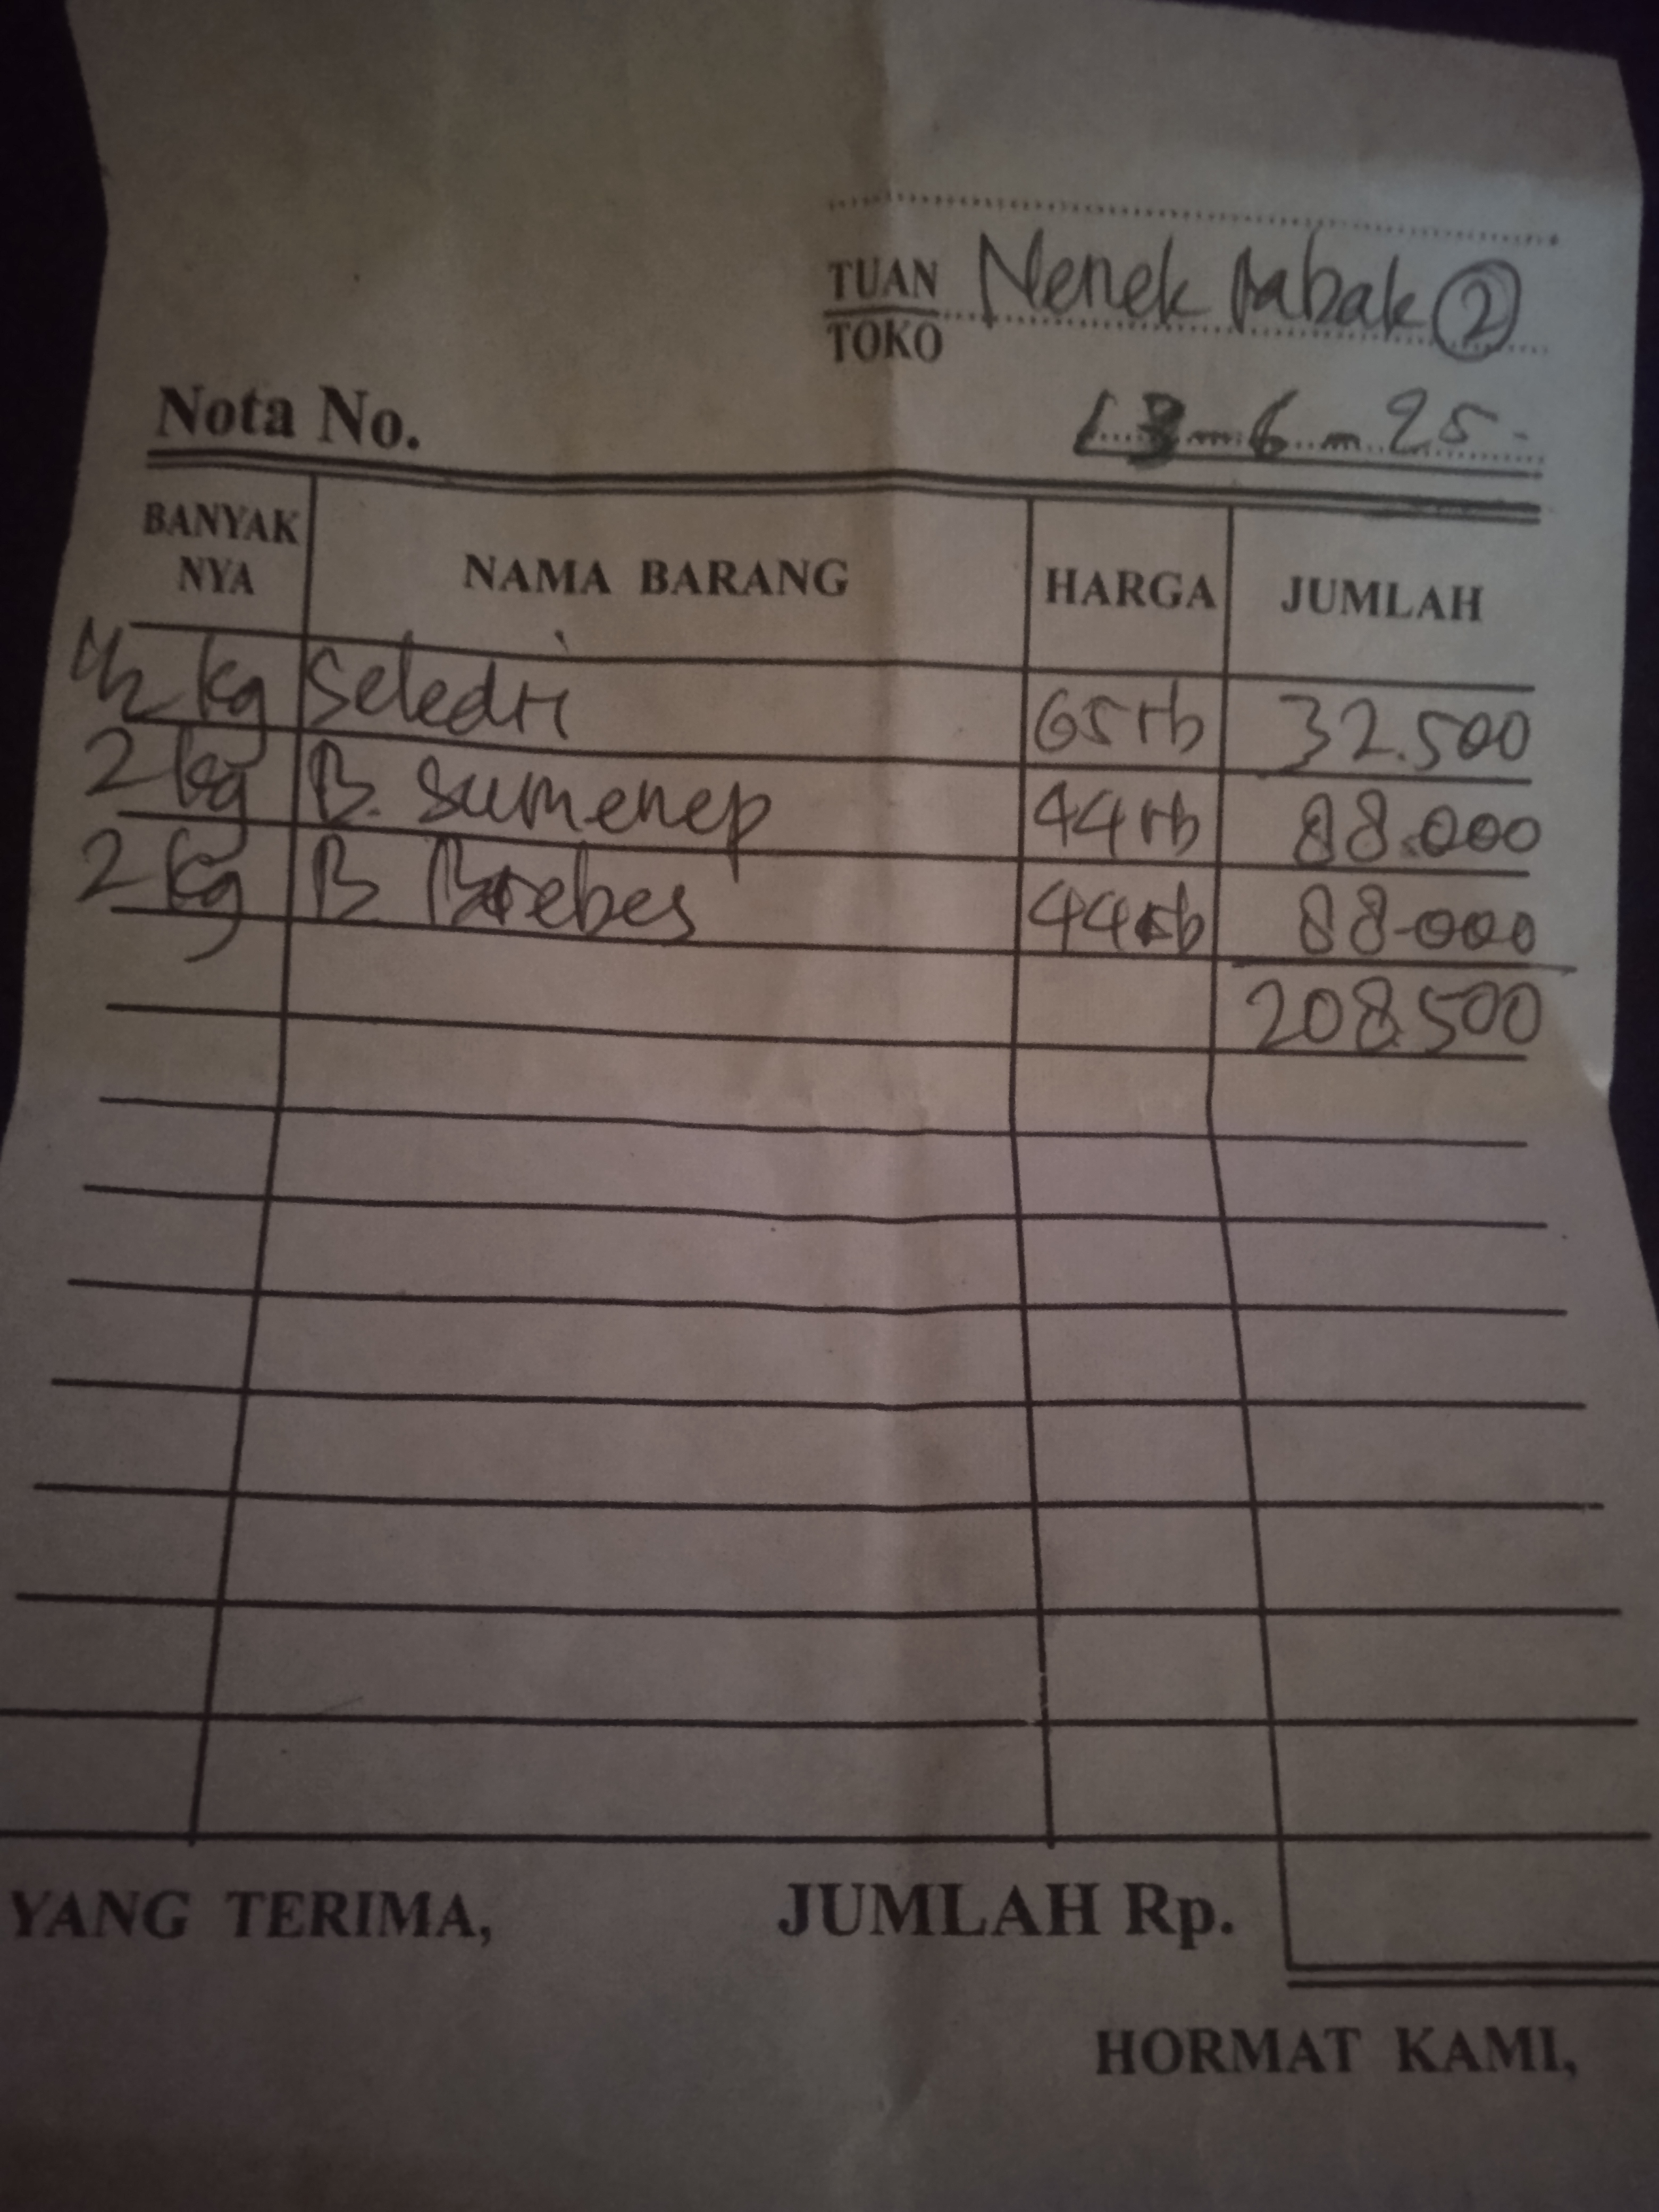 TUAN Nenek
TOKO
Nota No. 13-6-25-
BANYAK NYA NAMA BARANG HARGA JUMLAH
1/2 kg Seledri 65rb 32.500
2 kg B. Sumenep 44rb 88.000
2 kg B. Brebes 44rb 88.000
208.500
YANG TERIMA, JUMLAH Rp.
HORMAT KAMI,